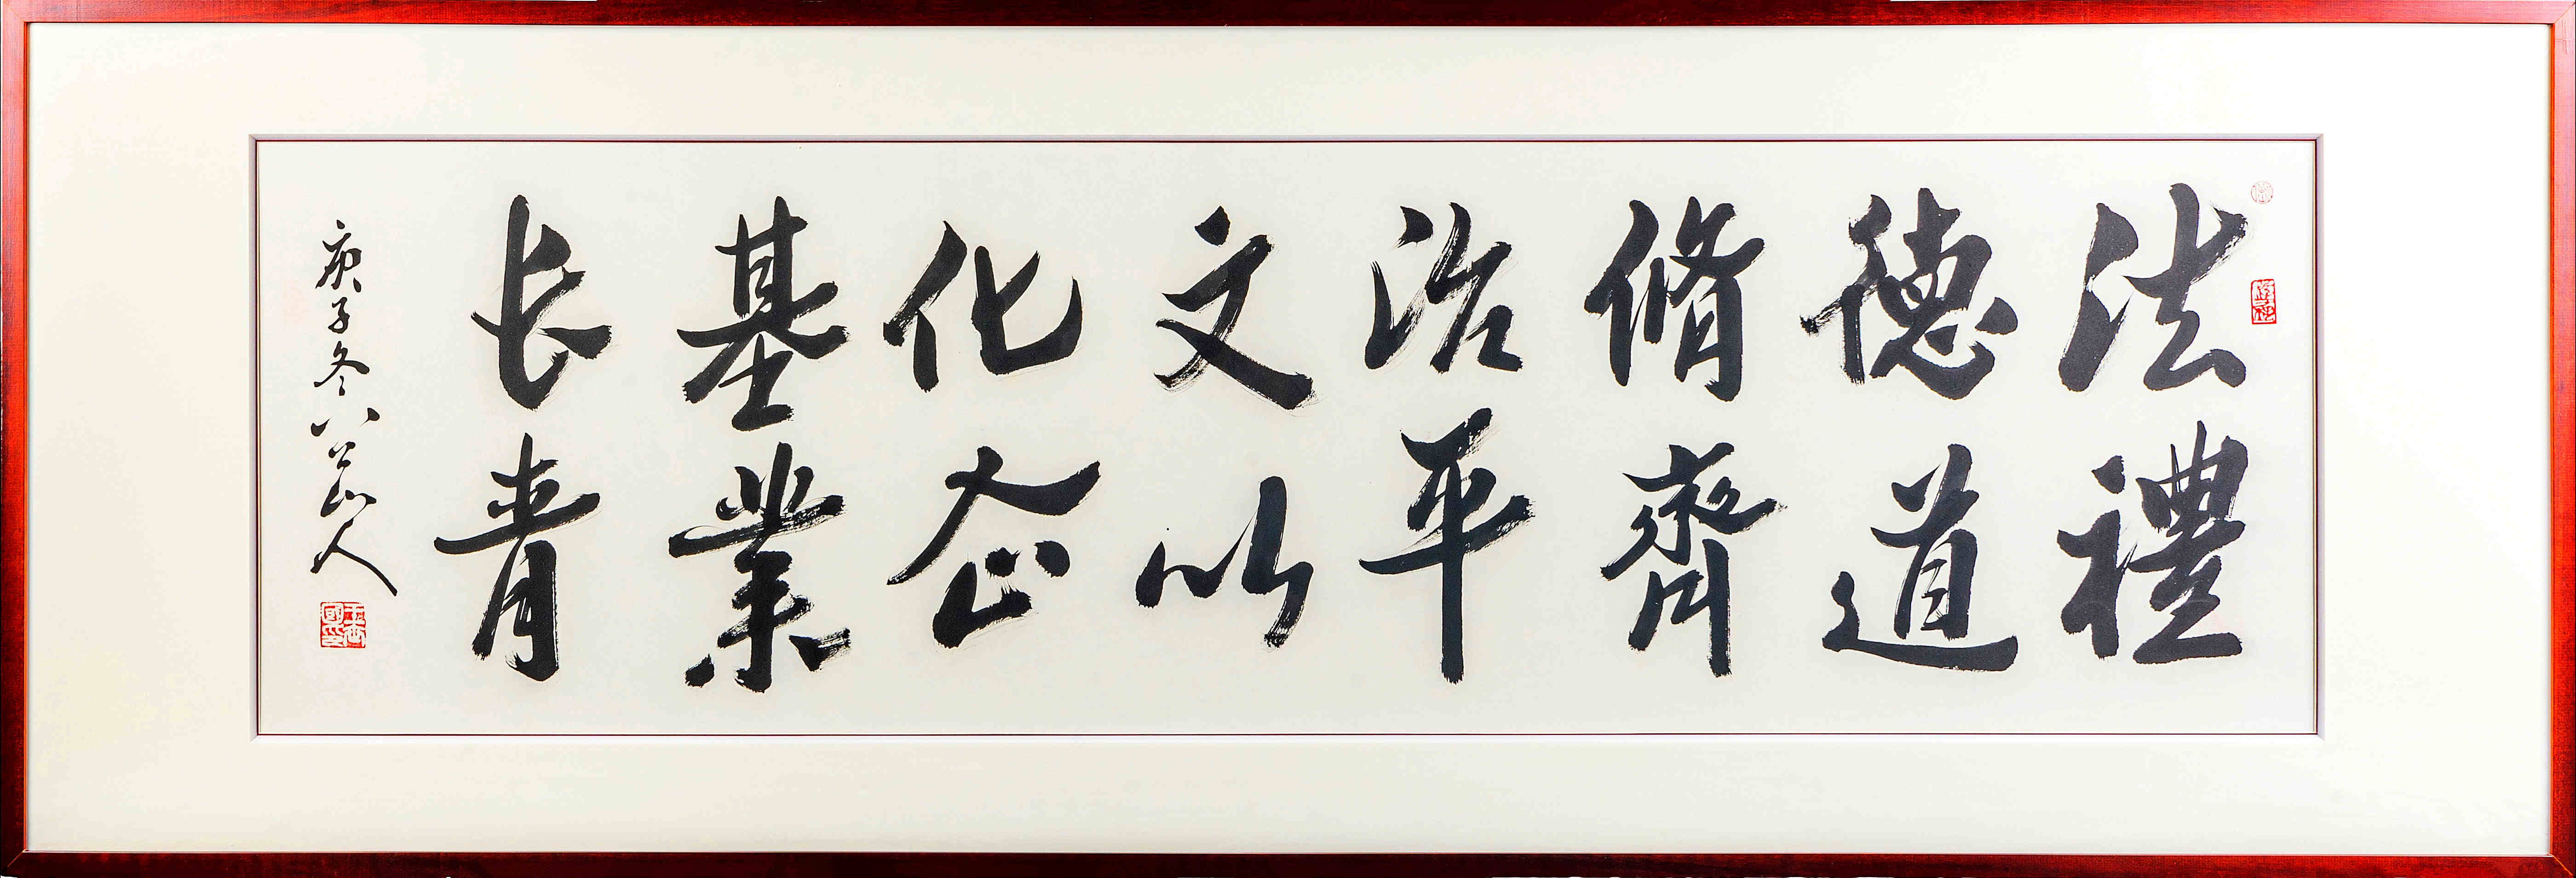 法禮
德道
脩齊
治平
文以
化企
基業
长青
庚子冬八公山人